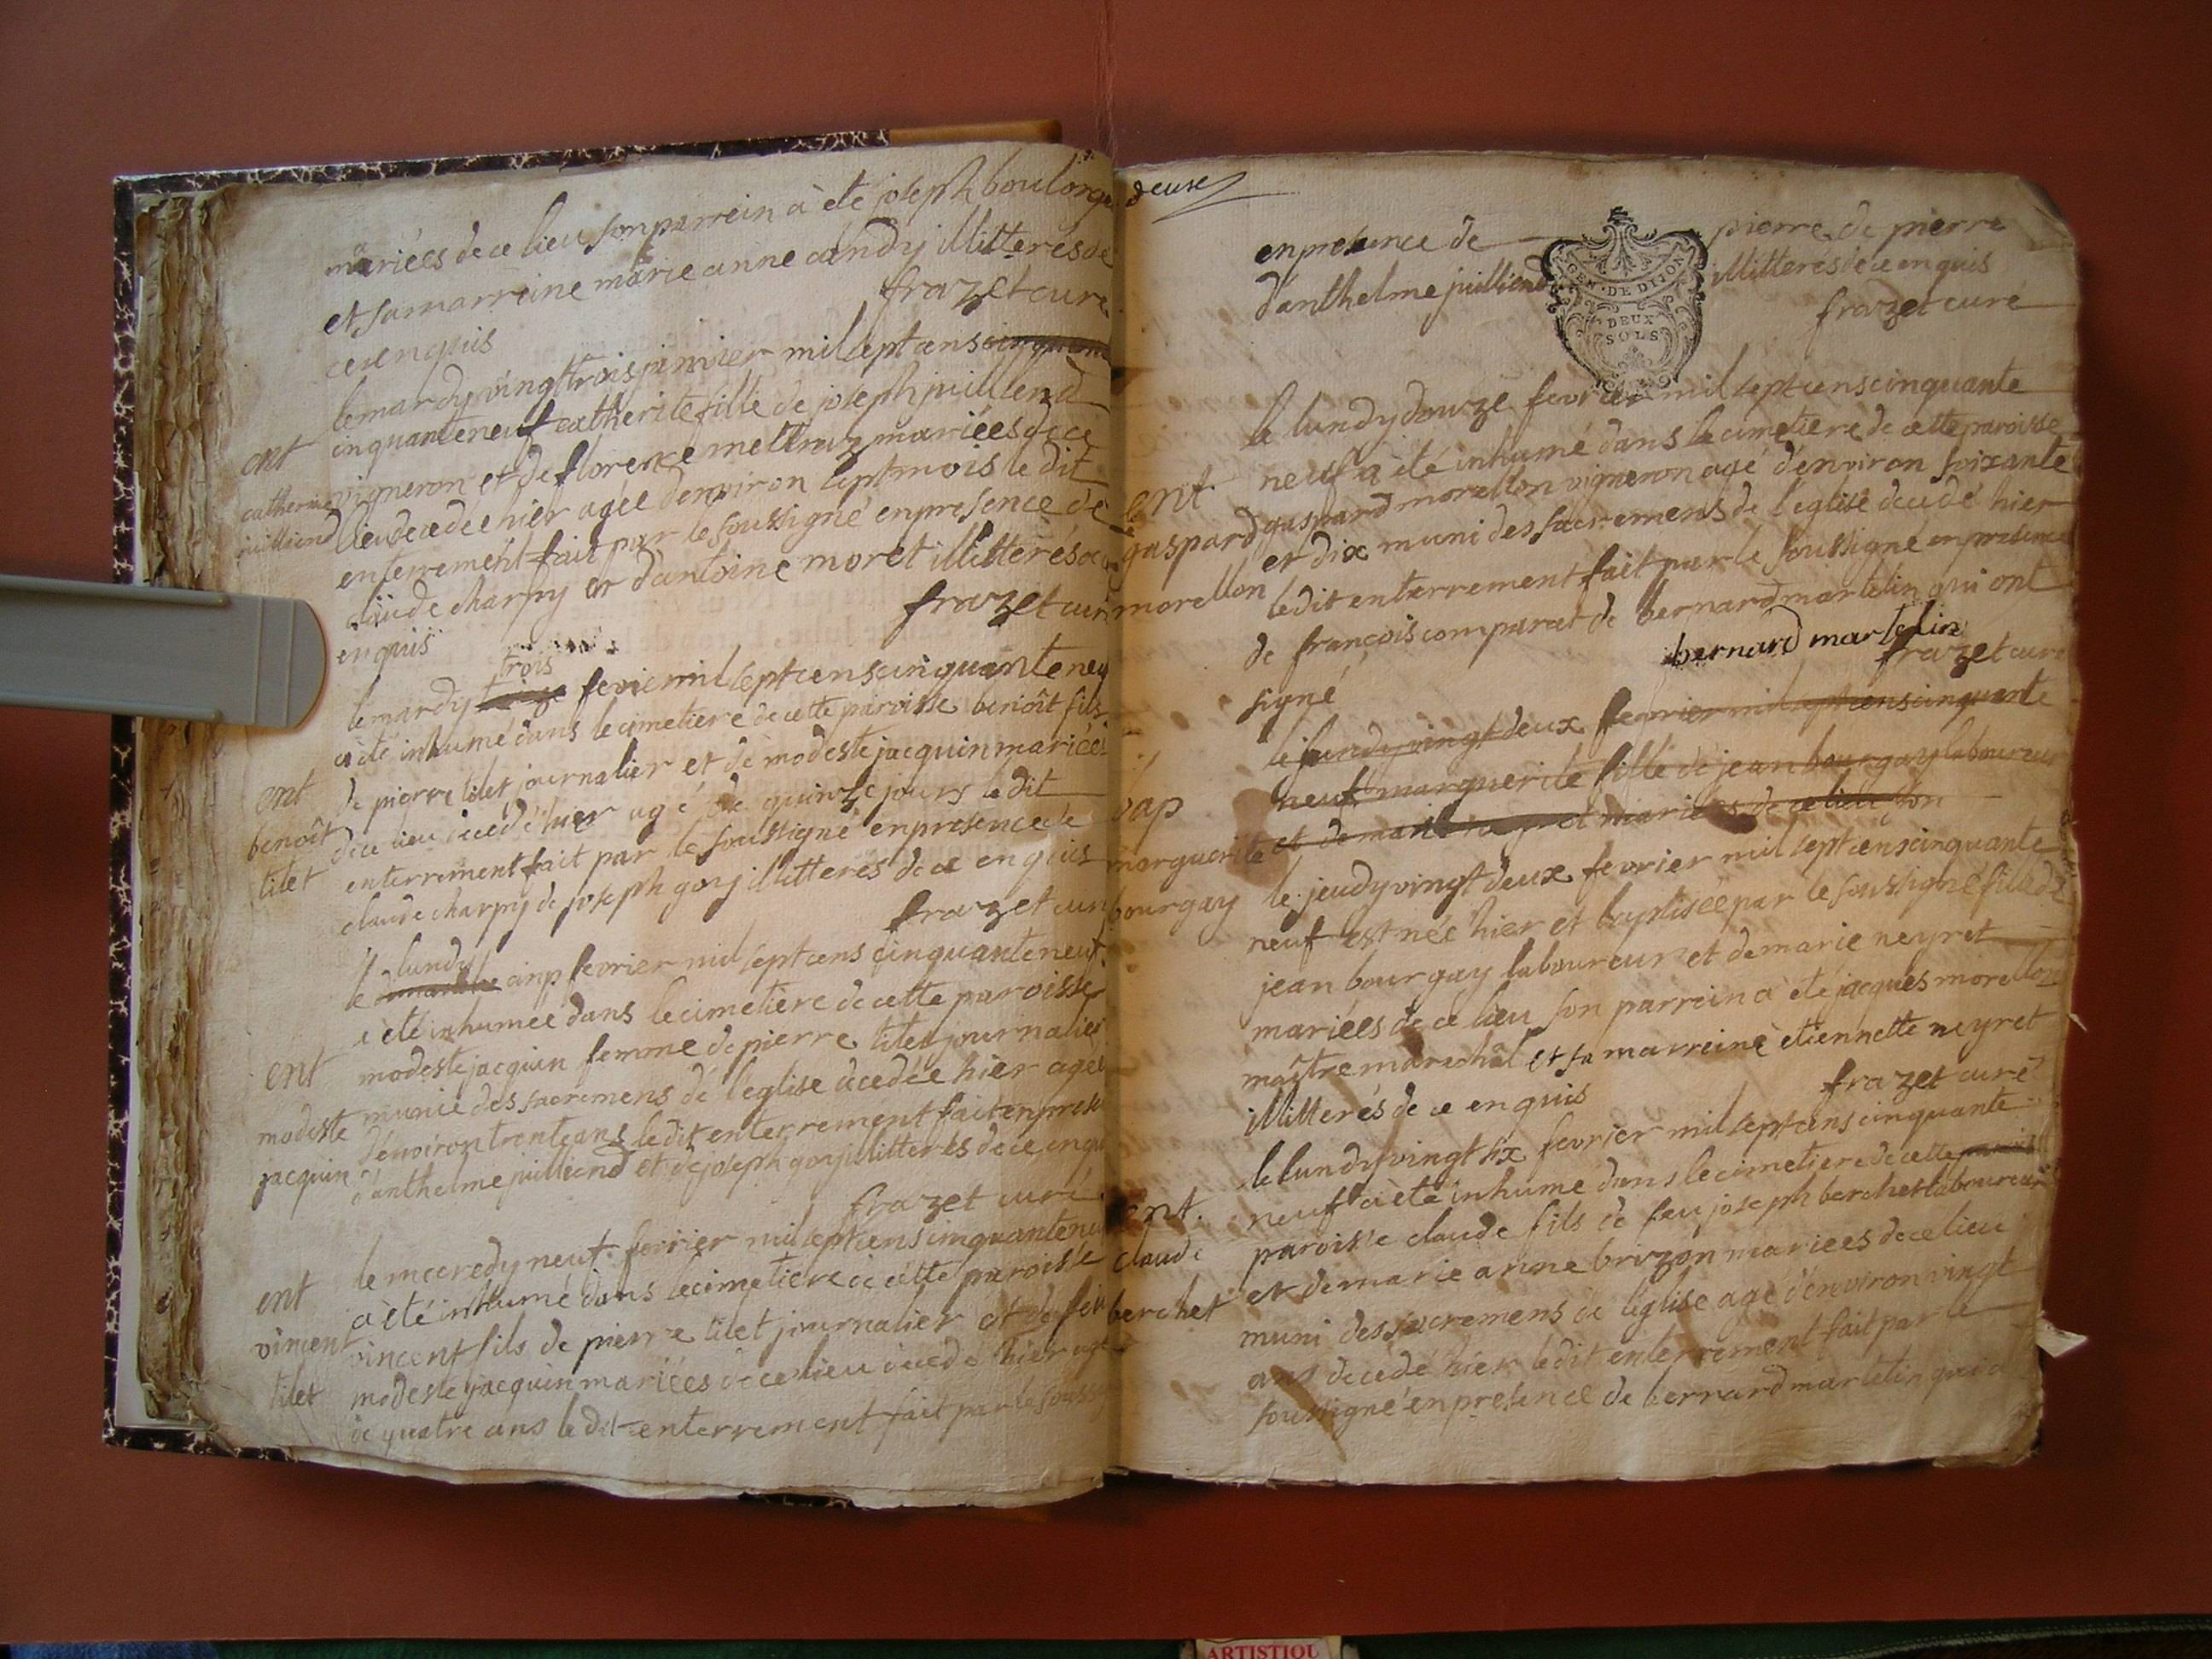 mariées de ce lieu son parrein à été joseph boulorge
et sa marreine marie anne candy illitterés de
ce enquis frazet curé
ent
catherine
juilliend
le mardy vingt trois janvier mil sept cens cinquante
cinquante neuf catherite fille de joseph juilliend
vigneron et de florence mettraz mariées de ce
lieu decedée hier agée denviron sept mois le dit
enterrement fait par le soussigné en presence de
claude charpy et d'antoine moret illitterés de ce
enquis frazet curé
ent
benoît
tilet
le mardy treize trois fevrier mil sept cens cinquante neuf
a été inhumé dans le cimetiere de cette paroisse benoît fils
de pierre tilet journalier et de modeste jacquin mariées
de ce lieu decedé hier agé de quinze jours le dit
enterrement fait par le soussigné en presence de
claude charpy de joseph gouj illitteres de ce enquis
frazet curé
ent
modeste
jacquin
le dimanche lundy cinq fevrier mil sept cens cinquante neuf
a été inhumée dans le cimetiere de cette paroisse
modeste jacquin femme de pierre tilet journalier
munie des sacremens de l'eglise decedée hier agée
d'environ trente ans le dit enterrement fait en prese
d'anthelme juilliend et de joseph gouj illitteres de ce enquis
frazet curé
ent
vincent
tilet
le mecredy neuf fevrier mil sept cens cinquante neuf
a été inhumé dans le cimetiere de cette paroisse
vincent fils de pierre tilet journalier et de feu
modeste jacquin mariées de ce lieu decedé hier agé
de quatre ans le dit enterrement fait par le souss
deuse
en presence de pierre de pierre
d'anthelme juilliend illitterés de ce enquis
frazet curé
GEN · DE DIJON
DEUX
SOLS
ent
gaspard
morellon
le lundy douze fevrier mil sept cens cinquante
neuf a été inhumé dans le cimetiere de cette paroisse
gaspard morellon vigneron agé d'environ soixante
et dix muni des sacremens de l'eglise decedé hier
ledit enterrement fait par le soussigné en presence
de françois comparat de bernard martelin qui ont
signé bernard martelin
frazet curé
bap
marguerite
bourgay
le jeudy vingt deux fevrier mil sept cens cinquante
neuf marguerite fille de jean bourgay laboureur
et de marie neyret mariées de ce lieu son
le jeudy vingt deux fevrier mil sept cens cinquante
neuf est née hier et baptisée par le soussigné fille de
jean bourgay laboureur et de marie neyret
mariées de ce lieu son parrein a été jacques morellon
maître marechal et sa marreine etiennette neyret
illitterés de ce enquis frazet curé
ent.
claude
berchet
le lundy vingt six fevrier mil sept cens cinquante
neuf a été inhume dans le cimetiere de cette parois
paroisse claude fils de feu joseph berchet laboureur
et de marie anne brizon mariees de ce lieu
muni des sacremens de l'eglise agé d'environ vingt
ans decedé hier le dit enterrement fait par le
soussigné en presence de bernard martelin qui a
ARTISTIQU